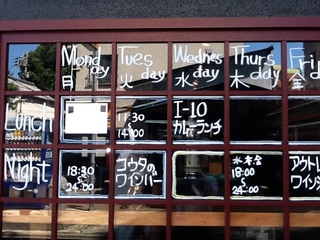 Mon
day
月
Tues
day
火
Wednes
day
水
Thurs
day
木
Fri
金
unch
11:30
14:00
I-10
カレーランチ
Night
18:30
24:00
コウタの
ワインバー
水・木・金
18:00
24:00
アウトレ
ワイン